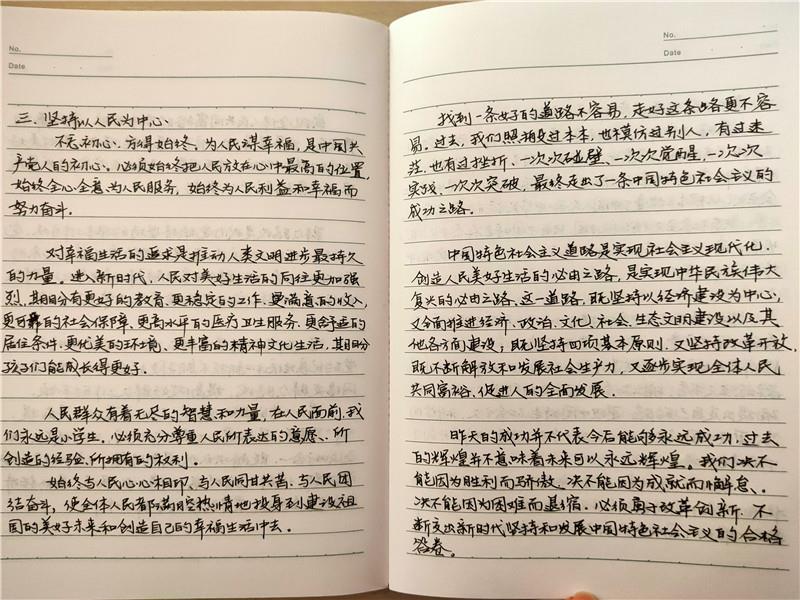 No.
Date
三. 坚持以人民为中心.
不忘初心, 方得始终, 为人民谋幸福, 是中国共
产党人的初心. 必须始终把人民放在心中最高的位置,
始终全心全意为人民服务, 始终为人民利益和幸福而
努力奋斗.
对幸福生活的追求是推动人类文明进步最持久
的力量. 进入新时代, 人民对美好生活的向往更加强
烈, 期盼有更好的教育、更稳定的工作、更满意的收入,
更可靠的社会保障、更高水平的医疗卫生服务、更舒适的
居住条件、更优美的环境、更丰富的精神文化生活, 期盼
孩子们能成长得更好.
人民群众有着无尽的智慧和力量, 在人民面前, 我
们永远是小学生. 必须充分尊重人民所表达的意愿、所
创造的经验、所拥有的权利.
始终与人民心心相印、与人民同甘共苦、与人民团
结奋斗, 使全体人民都满腔热情地投身到建设祖
国的美好未来和创造自己的幸福生活中去.
No.
Date
找到一条好的道路不容易, 走好这条路更不容
易. 过去, 我们照搬过本本, 也模仿过别人, 有过迷
茫, 也有过挫折, 一次次碰壁、一次次觉醒, 一次次
实践、一次次突破, 最终走出了一条中国特色社会主义的
成功之路.
中国特色社会主义道路是实现社会主义现代化、
创造人民美好生活的必由之路, 是实现中华民族伟大
复兴的必由之路. 这一道路, 既坚持以经济建设为中心,
又全面推进经济、政治、文化、社会、生态文明建设以及其
他各方面建设; 既坚持四项基本原则, 又坚持改革开放.
既不断解放和发展社会生产力, 又逐步实现全体人民
共同富裕、促进人的全面发展.
昨天的成功并不代表今后能够永远成功, 过去
的辉煌并不意味着未来可以永远辉煌. 我们决不
能因为胜利而骄傲, 决不能因为成就而懈怠、
决不能因为困难而退缩. 必须勇于改革创新、不
断交出新时代坚持和发展中国特色社会主义的合格
答卷.